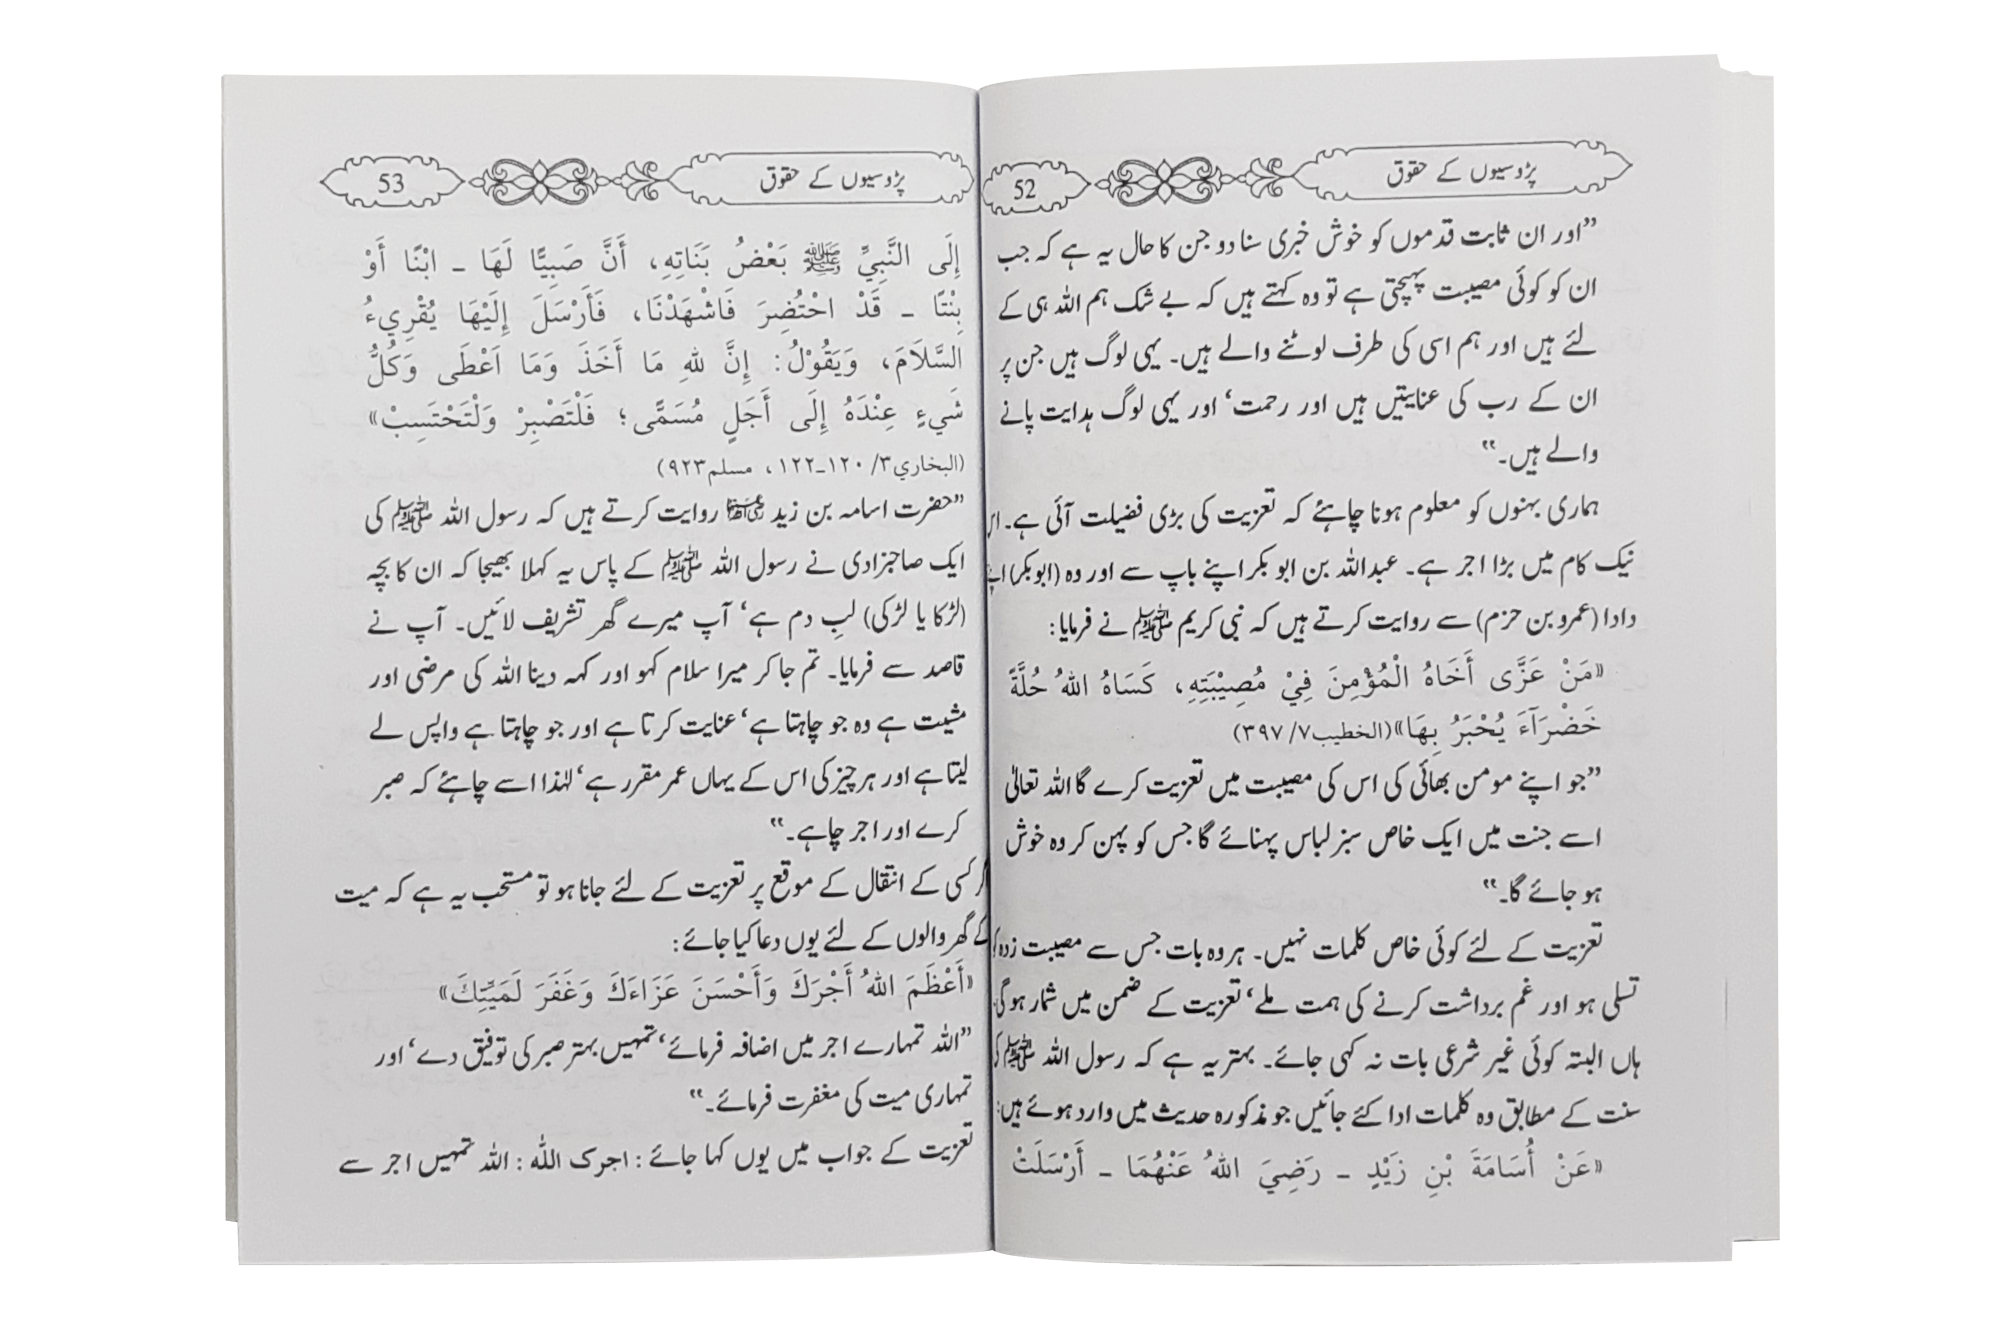 پڑوسیوں کے حقوق
52
”اور ان ثابت قدموں کو خوش خبری سنا دو جن کا حال یہ ہے کہ جب
ان کو کوئی مصیبت پہنچتی ہے تو وہ کہتے ہیں کہ بے شک ہم اللہ ہی کے
لئے ہیں اور ہم اسی کی طرف لوٹنے والے ہیں۔ یہی لوگ ہیں جن پر
ان کے رب کی عنایتیں ہیں اور رحمت، اور یہی لوگ ہدایت پانے
والے ہیں۔“
ہماری بہنوں کو معلوم ہونا چاہئے کہ تعزیت کی بڑی فضیلت آئی ہے۔ اس
نیک کام میں بڑا اجر ہے۔ عبداللہ بن ابو بکر اپنے باپ سے اور وہ (ابوبکر) اپنے
دادا (عمرو بن حزم) سے روایت کرتے ہیں کہ نبی کریم ﷺ نے فرمایا:
«مَنْ عَزَّى أَخَاهُ الْمُؤْمِنَ فِيْ مُصِيْبَتِهِ، كَسَاهُ اللهُ حُلَّةً
خَضْرَآءَ يُحْبَرُ بِهَا» (الخطيب ٧/ ٣٩٧)
”جو اپنے مومن بھائی کی اس کی مصیبت میں تعزیت کرے گا اللہ تعالٰی
اسے جنت میں ایک خاص سبز لباس پہنائے گا جس کو پہن کر وہ خوش
ہو جائے گا۔“
تعزیت کے لئے کوئی خاص کلمات نہیں۔ ہر وہ بات جس سے مصیبت زدہ
تسلی ہو اور غم برداشت کرنے کی ہمت ملے، تعزیت کے ضمن میں شمار ہوگی
ہاں البتہ کوئی غیر شرعی بات نہ کہی جائے۔ بہتر یہ ہے کہ رسول اللہ ﷺ کی
سنت کے مطابق وہ کلمات ادا کئے جائیں جو مذکورہ حدیث میں وارد ہوئے ہیں:
«عَنْ أُسَامَةَ بْنِ زَيْدٍ ـ رَضِيَ اللهُ عَنْهُمَا ـ أَرْسَلَتْ
پڑوسیوں کے حقوق
53
إِلَى النَّبِيِّ ﷺ بَعْضُ بَنَاتِهِ، أَنَّ صَبِيًّا لَهَا ـ ابْنًا أَوْ
بِنْتًا ـ قَدْ احْتُضِرَ فَاشْهَدْنَا، فَأَرْسَلَ إِلَيْهَا يُقْرِيءُ
السَّلَامَ، وَيَقُوْلُ: إِنَّ للهِ مَا أَخَذَ وَمَا اَعْطَى وَكُلُّ
شَيءٍ عِنْدَهُ إِلَى أَجَلٍ مُسَمًّى؛ فَلْتَصْبِرْ وَلْتَحْتَسِبْ»
(البخاري ٣/ ١٢٠ـ١٢٢، مسلم ٩٢٣)
”حضرت اسامہ بن زید رضی اللہ عنہما روایت کرتے ہیں کہ رسول اللہ ﷺ کی
ایک صاحبزادی نے رسول اللہ ﷺ کے پاس یہ کہلا بھیجا کہ ان کا بچہ
(لڑکا یا لڑکی) لبِ دم ہے، آپ میرے گھر تشریف لائیں۔ آپ نے
قاصد سے فرمایا۔ تم جا کر میرا سلام کہو اور کہہ دینا اللہ کی مرضی اور
مشیت ہے وہ جو چاہتا ہے، عنایت کرتا ہے اور جو چاہتا ہے واپس لے
لیتا ہے اور ہر چیز کی اس کے یہاں عمر مقرر ہے، لہٰذا اسے چاہئے کہ صبر
کرے اور اجر چاہے۔“
اگر کسی کے انتقال کے موقع پر تعزیت کے لئے جانا ہو تو مستحب یہ ہے کہ میت
کے گھر والوں کے لئے یوں دعا کیا جائے:
«أَعْظَمَ اللهُ أَجْرَكَ وَأَحْسَنَ عَزَاءَكَ وَغَفَرَ لَمَيِّتِكَ»
”اللہ تمہارے اجر میں اضافہ فرمائے، تمہیں بہتر صبر کی توفیق دے، اور
تمہاری میت کی مغفرت فرمائے۔“
تعزیت کے جواب میں یوں کہا جائے: اجرک اللّٰہ: اللہ تمہیں اجر سے